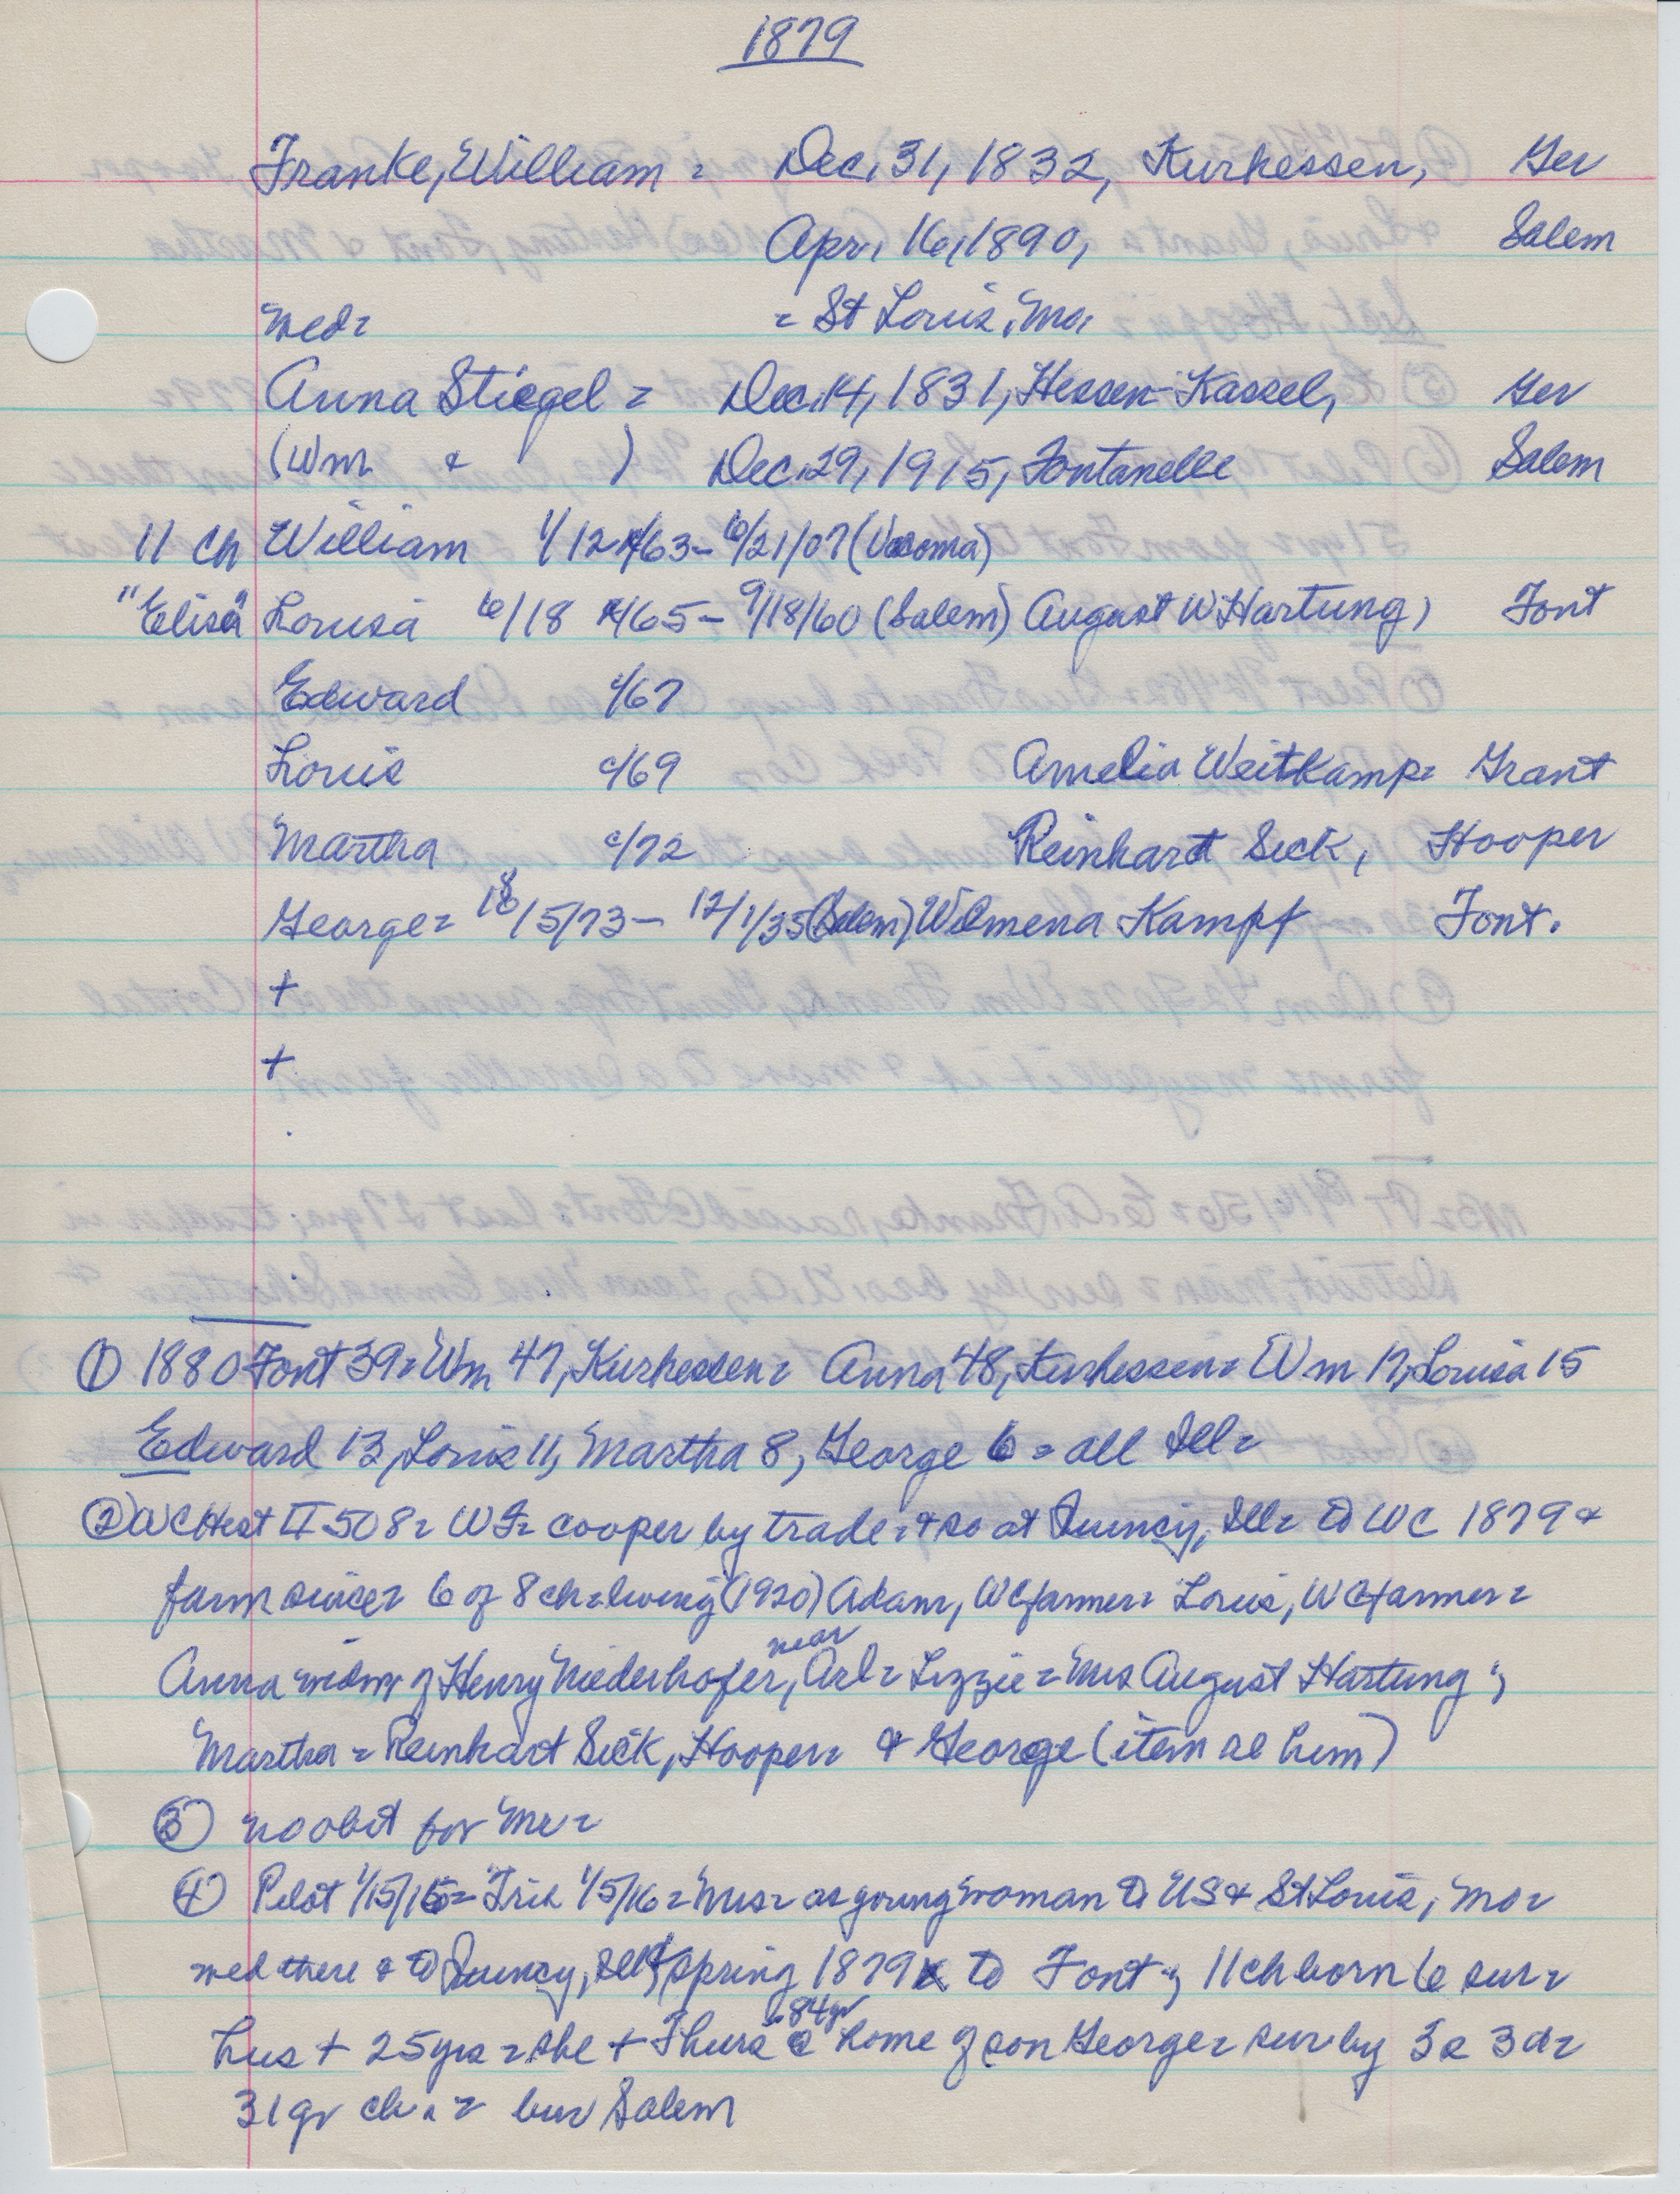 1879
Franke, William = Dec. 31, 1832, Kurhessen, Ger
Apr. 16, 1890, Salem
med = = St Louis, Mo.
Anna Stiegel = Dec. 14, 1831, Hessen-Kassel, Ger
(Wm & ) Dec. 29, 1915, Fontanelle Salem
11 ch William 1/12 c/63 - 6/21/07 (Uocoma)
"Elisa" Lousia 6/18 c/65 - 9/18/60 (Salem) August W Hartung, Font
Edward c/67
Louis c/69 Amelia Weitkamp = Grant
Martha c/72 Reinhart Sick, Hooper
George = 18/5/73 - 12/1/35 (Salem) Wilmena Kampf Font.
+
+
① 1880 Font 39 = Wm 47, Kurhessen = Anna 48, Kurhessen = Wm 17, Louisa 15
Edward 13, Louis 11, Martha 8, George 6 = all Ill =
② WC Hist II 508 = WF = cooper by trade = & so at Quincy, Ill = to WC 1879 &
farm since = 6 of 8 ch = living (1920) Adam, WC farmer = Louis, WC farmer =
Anna widow of Henry Niederhofer, near Arl = Lizzie = Mrs August Hartung ;
Martha = Reinhart Sick, Hooper = & George (item re him)
③ no obit for Mr =
④ Pilot 1/15/16 = Trib 1/5/16 = Mrs = as young woman to US & St Louis, Mo =
med there & to Quincy, Ill & spring 1879 to Font ; 11 ch born 6 sur =
hus + 25 yrs = she + Thurs 84 yr @ home of son George = sur by 3 s 3 d =
31 gr ch. = bur Salem